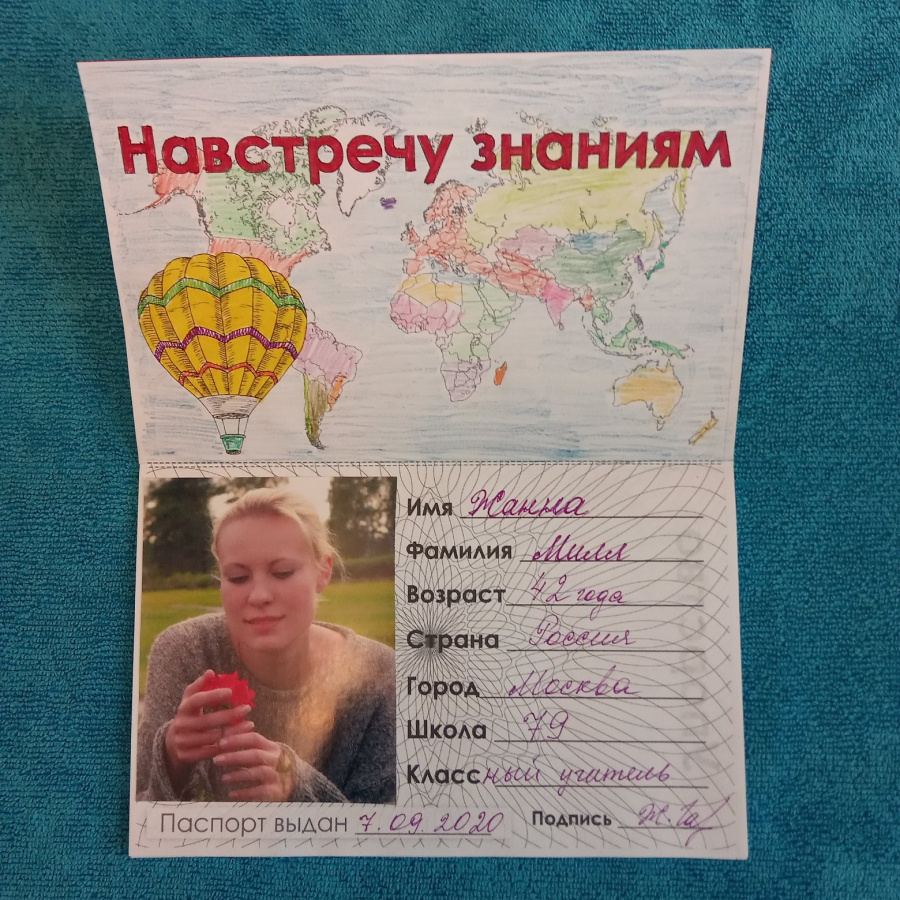 Навстречу знаниям
Имя Жанна
Фамилия Милл
Возраст 42 года
Страна Россия
Город Москва
Школа 79
Классный учитель
Паспорт выдан 7.09.2020 Подпись Ж.